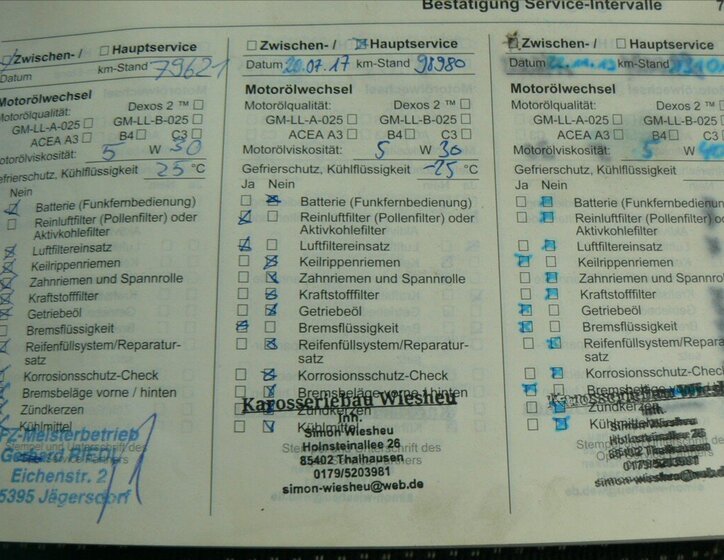 Bestätigung Service-Intervalle 7
Zwischen- / Hauptservice
Datum km-Stand 79621
Motorölwechsel
Motorölqualität: Dexos 2 ™
GM-LL-A-025 GM-LL-B-025
ACEA A3 B4 C3
Motorölviskosität: 5 W 30
Gefrierschutz, Kühlflüssigkeit 25 °C
Nein
Batterie (Funkfernbedienung)
Reinluftfilter (Pollenfilter) oder
Aktivkohlefilter
Luftfiltereinsatz
Keilrippenriemen
Zahnriemen und Spannrolle
Kraftstofffilter
Getriebeöl
Bremsflüssigkeit
Reifenfüllsystem/Reparatur-
satz
Korrosionsschutz-Check
Bremsbeläge vorne / hinten
Zündkerzen
Kühlmittel
FZ-Meisterbetrieb
Stempel und Unterschrift des
Gerhard RIEDL
Eichenstr. 2
5395 Jägersdorf
Zwischen- / Hauptservice
Datum 20.07.17 km-Stand 98980
Motorölwechsel
Motorölqualität: Dexos 2 ™
GM-LL-A-025 GM-LL-B-025
ACEA A3 B4 C3
Motorölviskosität: 5 W 30
Gefrierschutz, Kühlflüssigkeit -25 °C
Ja Nein
Batterie (Funkfernbedienung)
Reinluftfilter (Pollenfilter) oder
Aktivkohlefilter
Luftfiltereinsatz
Keilrippenriemen
Zahnriemen und Spannrolle
Kraftstofffilter
Getriebeöl
Bremsflüssigkeit
Reifenfüllsystem/Reparatur-
satz
Korrosionsschutz-Check
Bremsbeläge vorne / hinten
Karosseriebau Wiesheu
Zündkerzen
Inh.
Kühlmittel
Simon Wiesheu
Stempel und Unterschrift des
Hohnsteinallee 26
85402 Thalhausen
0179/5203981
simon-wiesheu@web.de
Zwischen- / Hauptservice
Datum km-Stand
Motorölwechsel
Motorölqualität: Dexos 2
GM-LL-A-025 GM-LL-B-025
ACEA A3 B4 C3
Motorölviskosität: 5 W 40
Gefrierschutz, Kühlflüssigkeit
Ja Nein
Batterie (Funkfernbedienung)
Reinluftfilter (Pollenfilter)
Aktivkohlefilter
Luftfiltereinsatz
Keilrippenriemen
Zahnriemen und Spannrolle
Kraftstofffilter
Getriebeöl
Bremsflüssigkeit
Reifenfüllsystem/Reparatur-
satz
Korrosionsschutz-Check
Bremsbeläge
Karosseriebau Wiesheu
Zündkerzen
Inh.
Simon Wiesheu
Hohnsteinallee 26
85402 Thalhausen
0179/5203981
simon-wiesheu@web